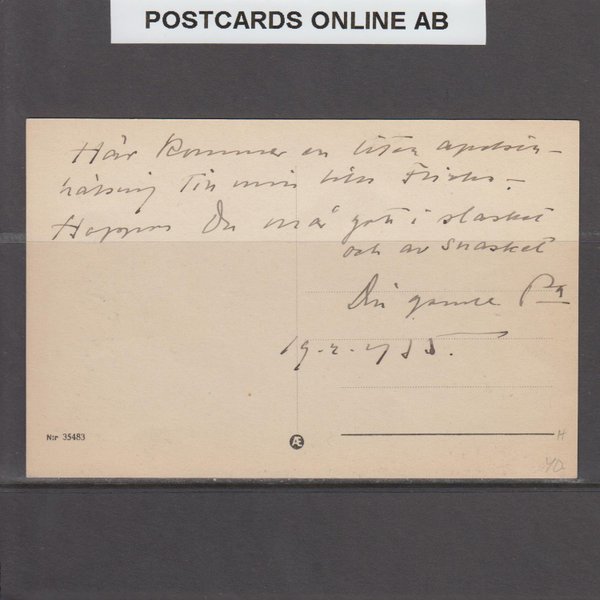 POSTCARDS ONLINE AB
Här kommer en liten apelsin-
hälsning till min lilla
Hoppas Du mår gott i slasket
och av snasket
Din gamle Pa
19-2-1955.
N:r 35483
Æ
H
40